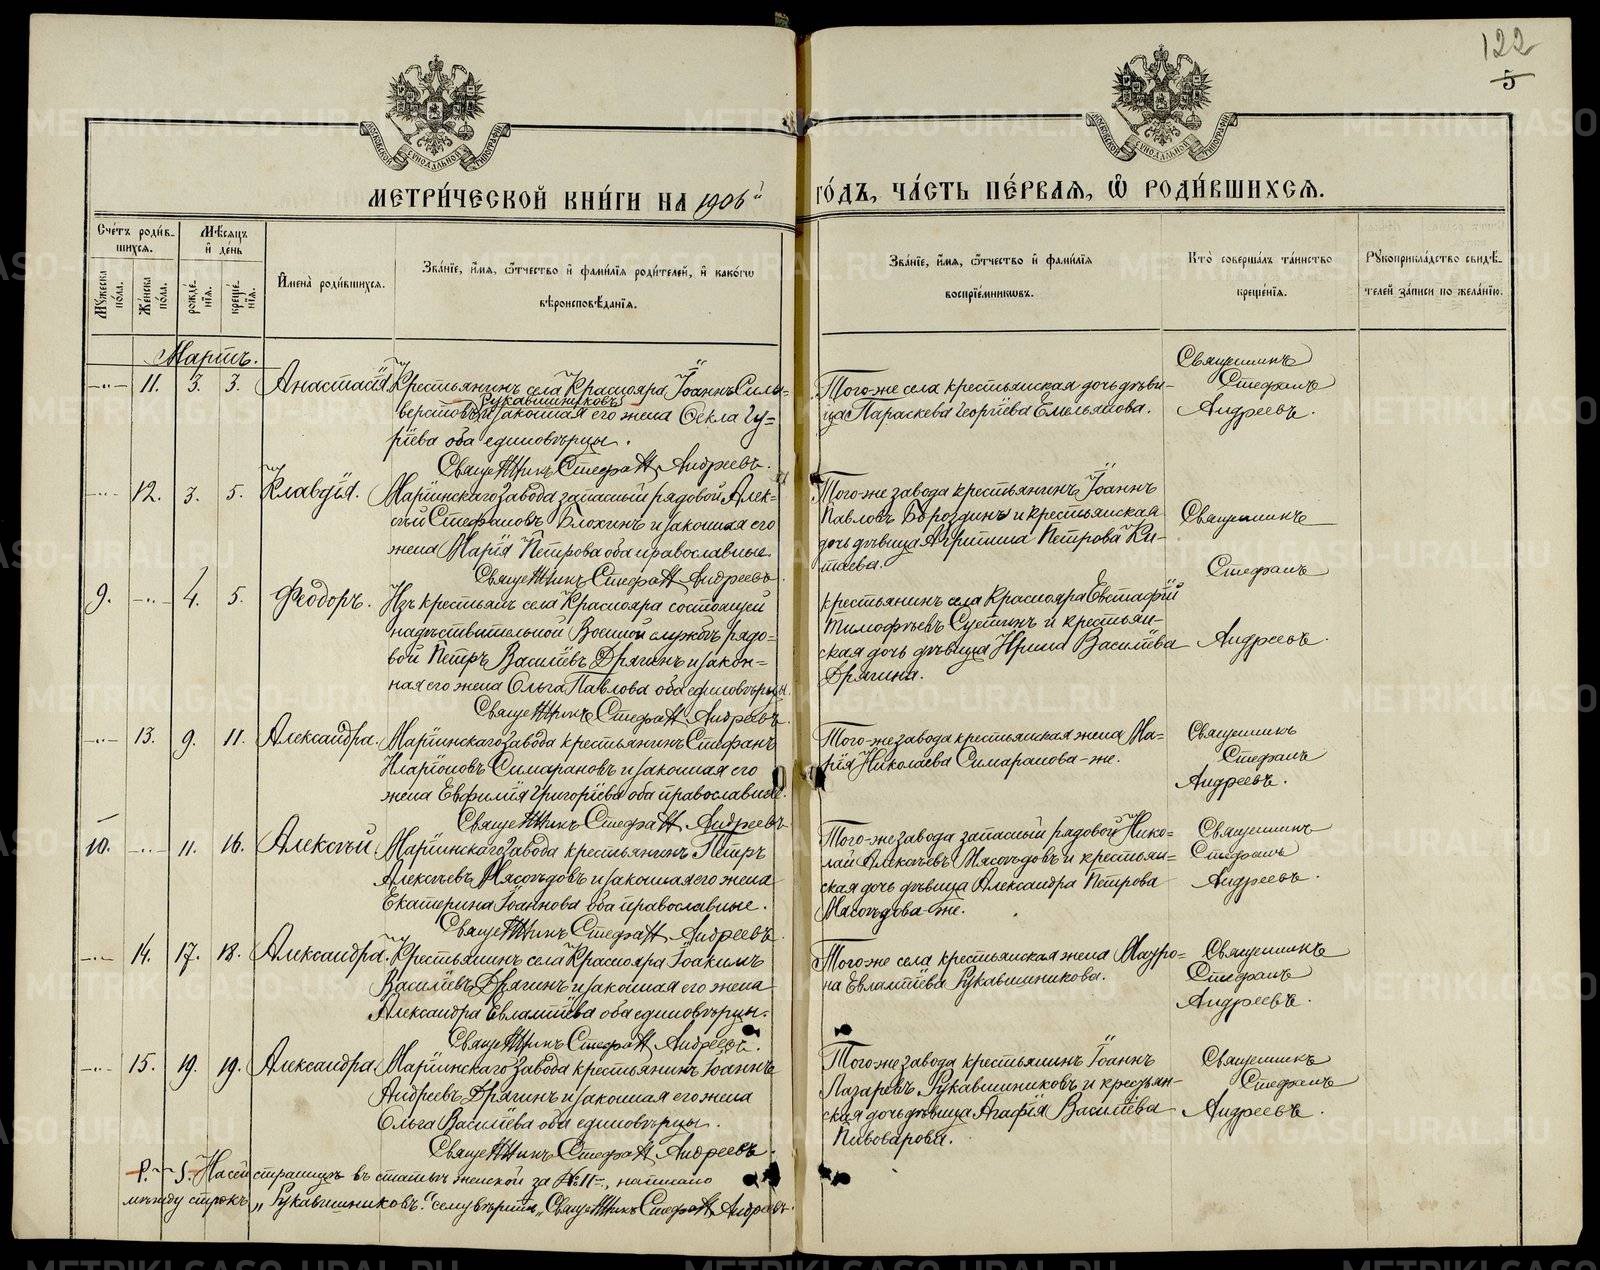 122
5
МОСКОВСКОЙ СѴНОДАЛЬНОЙ ТИПОГРАФІИ
МОСКОВСКОЙ СѴНОДАЛЬНОЙ ТИПОГРАФІИ
МЕТРИ́ЧЕСКОЙ КНИ́ГИ НА 1906й ГО́ДЪ, ЧА́СТЬ ПЕ́РВАѦ, Ѽ РОДИ́ВШИХСѦ.
Сче́тъ роди́в-
шихсѧ.
Мѣ́сѧцъ
и҆ де́нь
Мꙋ́жеска
по́ла.
Же́нска
по́ла.
рожде́-
нїѧ.
креще́-
нїѧ.
И҆мена̀ роди́вшихсѧ.
Зва́нїе, и҆́мѧ, ѻ҆́тчество и҆ фами́лїѧ роди́телей, и҆ како́гѡ
вѣроисповѣ́данїѧ.
Зва́нїе, и҆́мѧ, ѻ҆́тчество и҆ фами́лїѧ
воспрїе́мникѡвъ.
Кто̀ соверша́лъ та́инство
креще́нїѧ.
Рꙋкоприкла́дство свидѣ́-
телей за́писи по жела́нїю.
Мартъ.
11. 3. 3. Анастасія. Крестьянинъ села Краснояра Іоаннъ Силь-
Рукавишниковъ
верстовъ и законная его жена Ѳекла Гу-
ріева оба единовѣрцы.
Священникъ Стефанъ Андреевъ.
Того-же села крестьянская дочь дѣви-
ца Параскева Георгіева Емельянова.
Священникъ
Стефанъ
Андреевъ.
12. 3. 5. Клавдія. Маріинскаго завода запасный рядовой Алек-
сѣй Стефановъ Блохинъ и законная его
жена Марія Петрова оба православные.
Священникъ Стефанъ Андреевъ.
Того-же завода крестьянинъ Іоаннъ
Павловъ Бороздинъ и крестьянская
дочь дѣвица Агрипина Петрова Ки-
таева.
Священникъ
Стефанъ
Андреевъ.
9. 4. 5. Ѳеодоръ. Изъ крестьянъ села Краснояра состоящей
на дѣствительной Военной службѣ рядо-
вой Петръ Василіевъ Дрягинъ и закон-
ная его жена Ольга Павлова оба единовѣрцы.
Священникъ Стефанъ Андреевъ.
крестьянинъ села Краснояра Евстафій
Тимофѣевъ Сустинъ и крестьян-
ская дочь дѣвица Ирина Василіева
Дрягина.
13. 9. 11. Александра. Маріинскаго завода крестьянинъ Стефанъ
Иларіоновъ Симарановъ и законная его
жена Евфимія Григоріева оба православные.
Священникъ Стефанъ Андреевъ.
Того-же завода крестьянская жена Ма-
рія Николаева Симаранова-же.
Священникъ
Стефанъ
Андреевъ.
10. 11. 16. Алексѣй. Маріинскаго завода крестьянинъ Петръ
Алексѣевъ Мясоѣдовъ и законная его жена
Екатерина Іоаннова оба православные.
Священникъ Стефанъ Андреевъ.
Того-же завода запасный рядовой Нико-
лай Алексѣевъ Мясоѣдовъ и крестьян-
ская дочь дѣвица Александра Петрова
Мясоѣдова-же.
Священникъ
Стефанъ
Андреевъ.
14. 17. 18. Александра. Крестьянинъ села Краснояра Іоакимъ
Василіевъ Дрягинъ и законная его жена
Александра Евлампіева оба единовѣрцы.
Священникъ Стефанъ Андреевъ.
Того-же села крестьянская жена Мауро-
на Евлампіева Рукавишникова.
Священникъ
Стефанъ
Андреевъ.
15. 19. 19. Александра. Маріинскаго завода крестьянинъ Іоаннъ
Андреевъ Дрягинъ и законная его жена
Ольга Василіева оба единовѣрцы.
Священникъ Стефанъ Андреевъ.
Того-же завода крестьянинъ Іоаннъ
Лазаревъ Рукавишниковъ и крестьян-
ская дочь дѣвица Агафія Василіева
Пивоварова.
Священникъ
Стефанъ
Андреевъ.
P. S. На сей страницѣ въ статьѣ женской за № 11=, написано
между строкъ „Рукавишниковъ." сему вѣрить, Священникъ Стефанъ Андреевъ.
METRIKI.GASO-URAL.RU